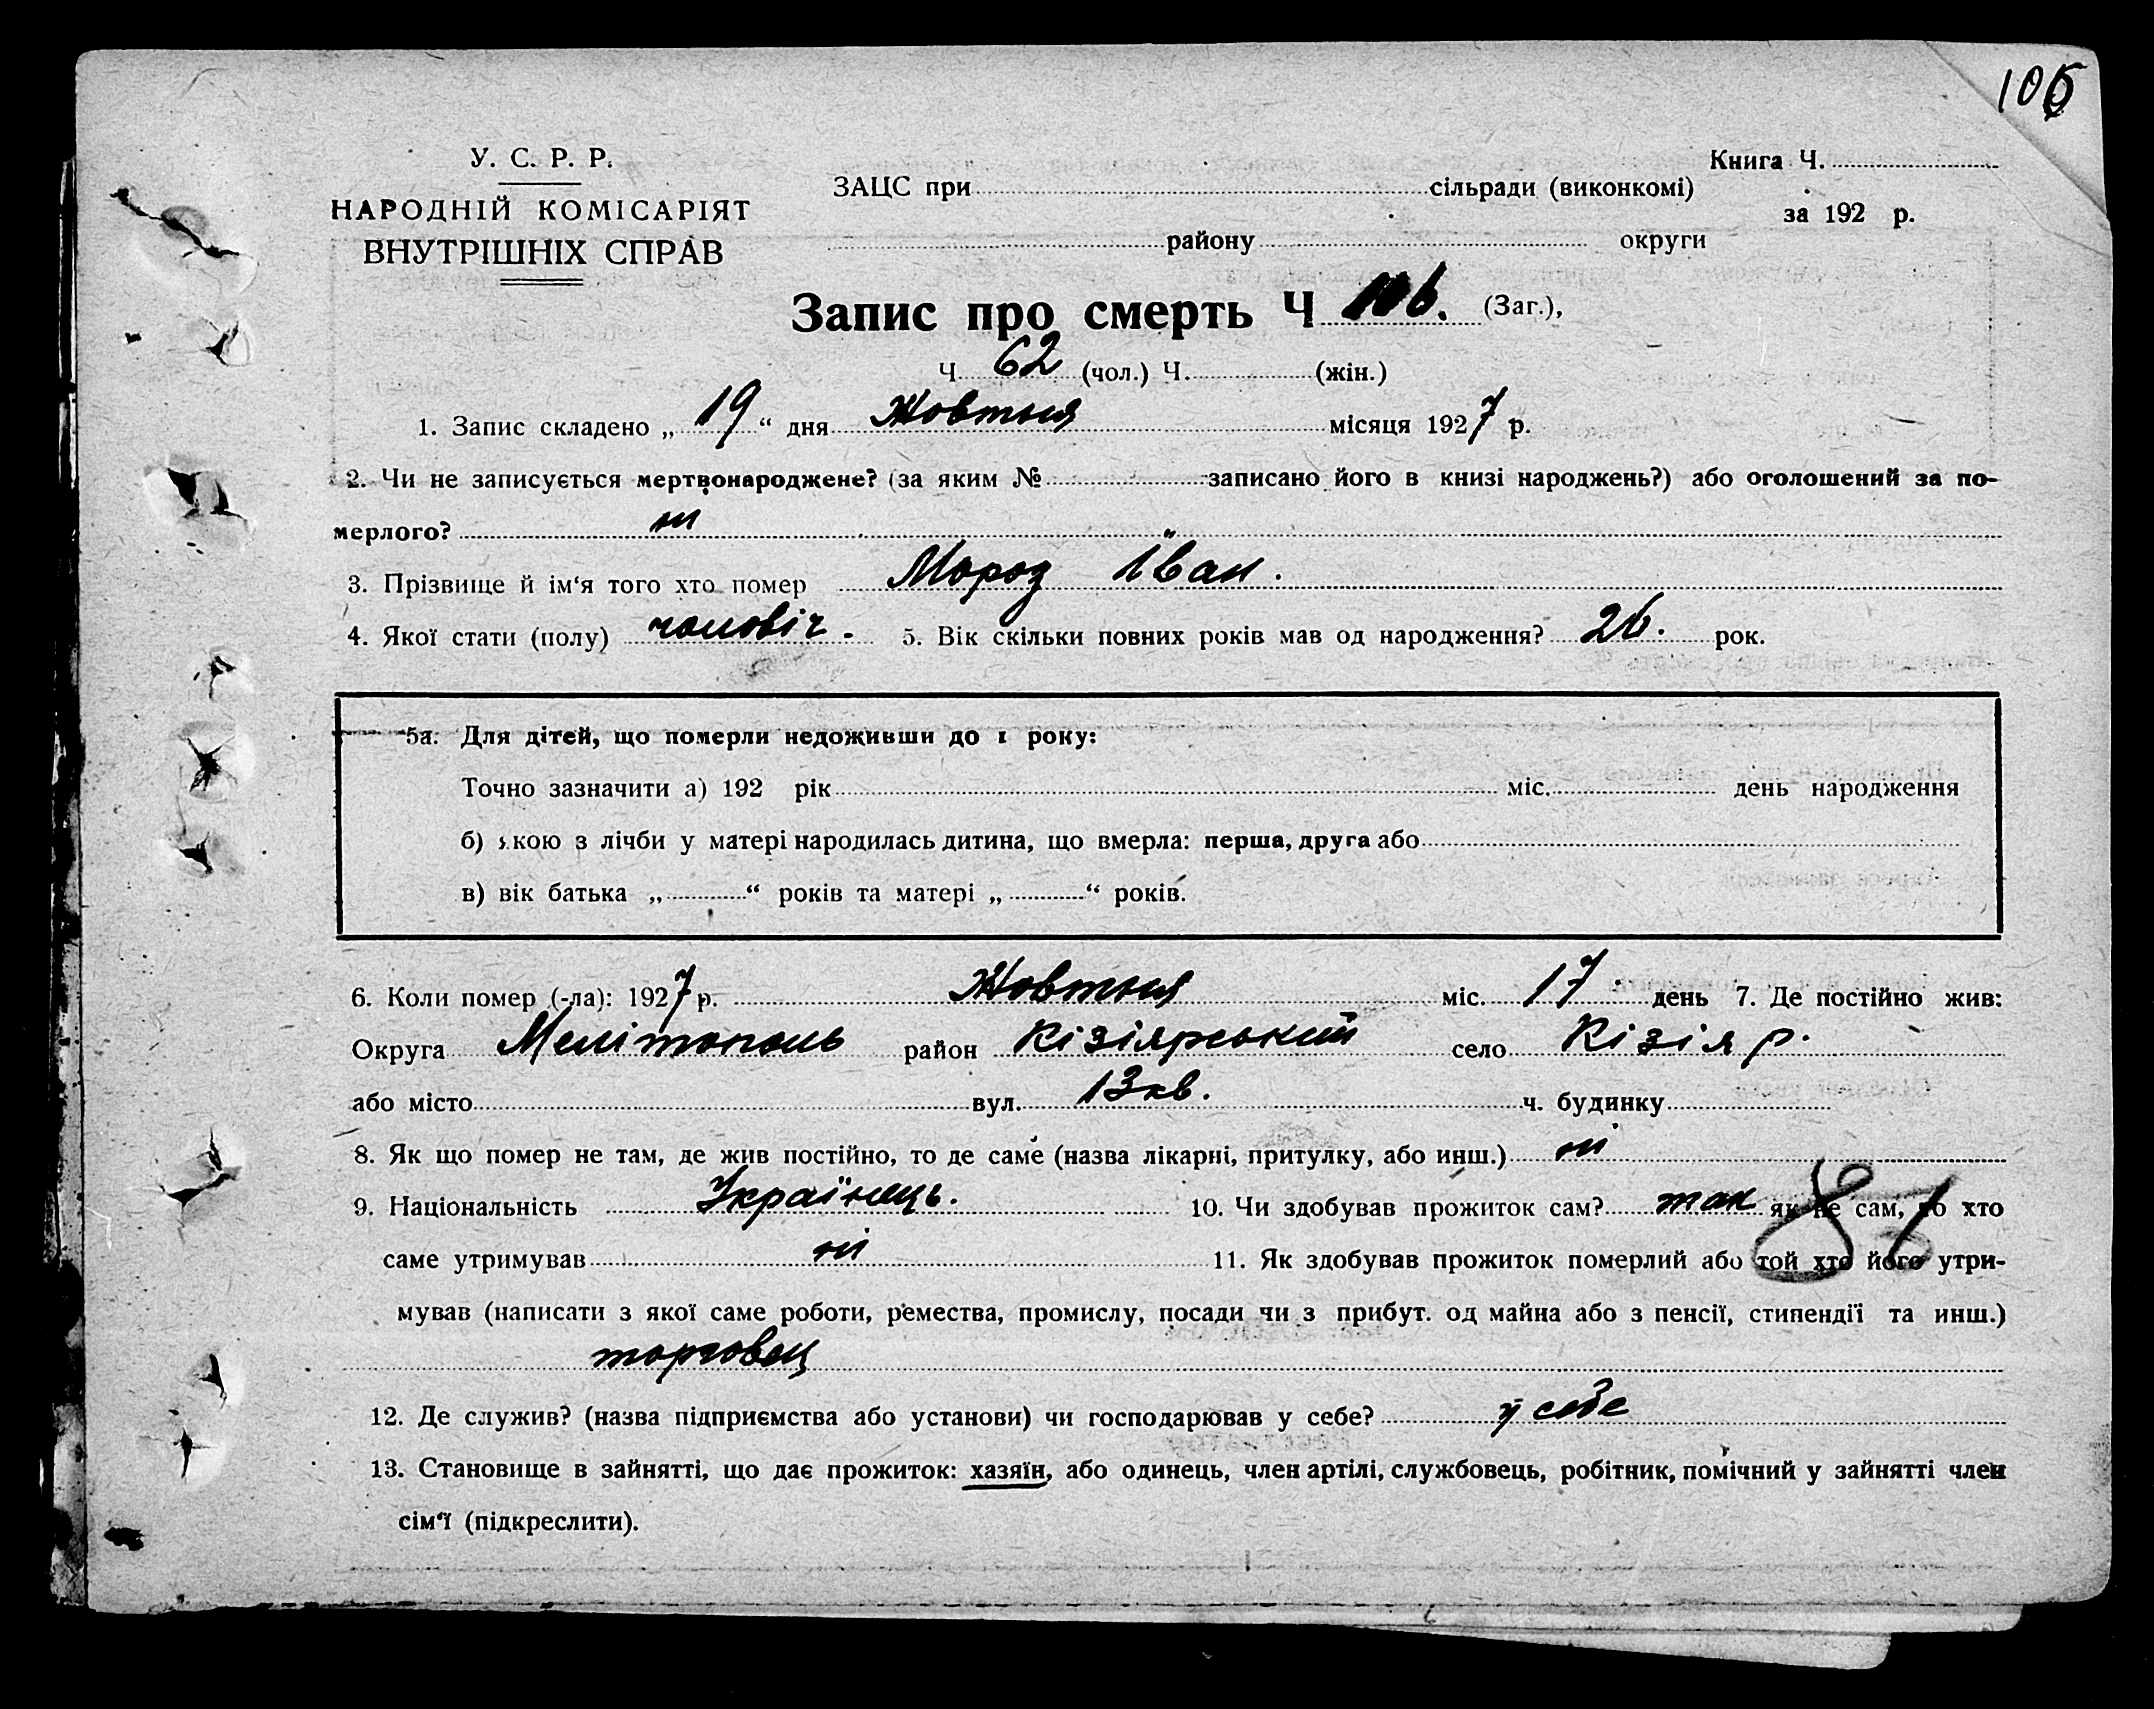 106
У. С. Р. Р.
НАРОДНІЙ КОМІСАРІЯТ
ВНУТРІШНІХ СПРАВ
ЗАЦС при сільради (виконкомі)
району округи
Книга Ч.
за 192 р.
Запис про смерть Ч 106. (Заг.),
Ч 62 (чол.) Ч. (жін.)
1. Запис складено „ 19 “ дня Жовтня місяця 1927 р.
2. Чи не записується мертвонароджене? (за яким № записано його в книзі народжень?) або оголошений за по-
мерлого? ні
3. Прізвище й ім‘я того хто помер Мороз Іван.
4. Якої стати (полу) чоловіч. 5. Вік скільки повних років мав од народження? 26. рок.
5а. Для дітей, що померли недоживши до 1 року:
Точно зазначити а) 192 рік міс. день народження
б) якою з лічби у матері народилась дитина, що вмерла: перша, друга або
в) вік батька „ “ років та матері „ “ років.
6. Коли помер (-ла): 1927 р. Жовтня міс. 17 день 7. Де постійно жив:
Округа Мелітополь район Кізіярський село Кізіяр.
або місто вул. 13 кв. ч. будинку
8. Як що помер не там, де жив постійно, то де саме (назва лікарні, притулку, або инш.) ні
9. Національність Українець. 10. Чи здобував прожиток сам? так як не сам, то хто
саме утримував ні 11. Як здобував прожиток померлий або той хто його утри-
мував (написати з якої саме роботи, ремества, промислу, посади чи з прибут. од майна або з пенсії, стипендії та инш.)
торговец
12. Де служив? (назва підприємства або установи) чи господарював у себе? у себе
13. Становище в зайнятті, що дає прожиток: хазяїн, або одинець, член артілі, службовець, робітник, помічний у зайнятті член
сім‘ї (підкреслити).